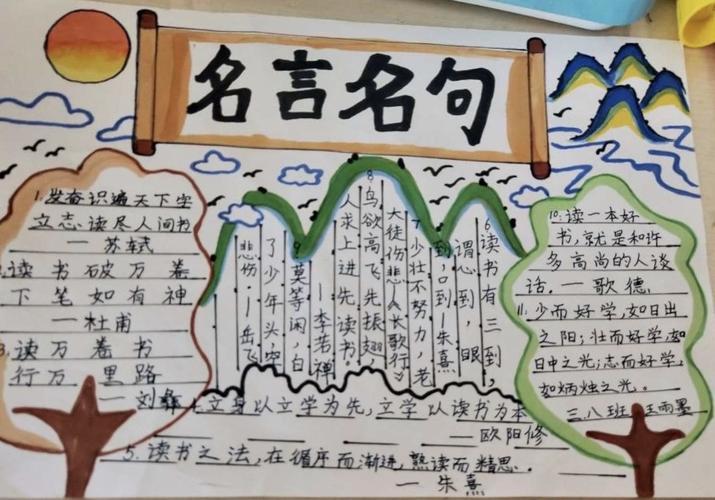 名言名句
1.发奋识遍天下字
立志读尽人间书
—苏轼
2.读书破万卷
下笔如有神
—杜甫
3.读万卷书
行万里路
—刘彝
立身以立学为先,立学以读书为本
—欧阳修
5.读书之法,在循序而渐进,熟读而精思。
—朱熹
6.读书有三到,
谓心到,眼
到,口到—朱熹
7少壮不努力,老
大徒伤悲《长歌行》
8.鸟欲高飞先振翅
人求上进先读书
—李若禅
9.莫等闲,白
了少年头,空
悲伤.—岳飞
10.读一本好
书,就是和许
多高尚的人谈
话。—歌德
11.少而好学,如日出
之阳;壮而好学,如
日中之光;志而好学,
如炳烛之光。
三、八班 王雨墨